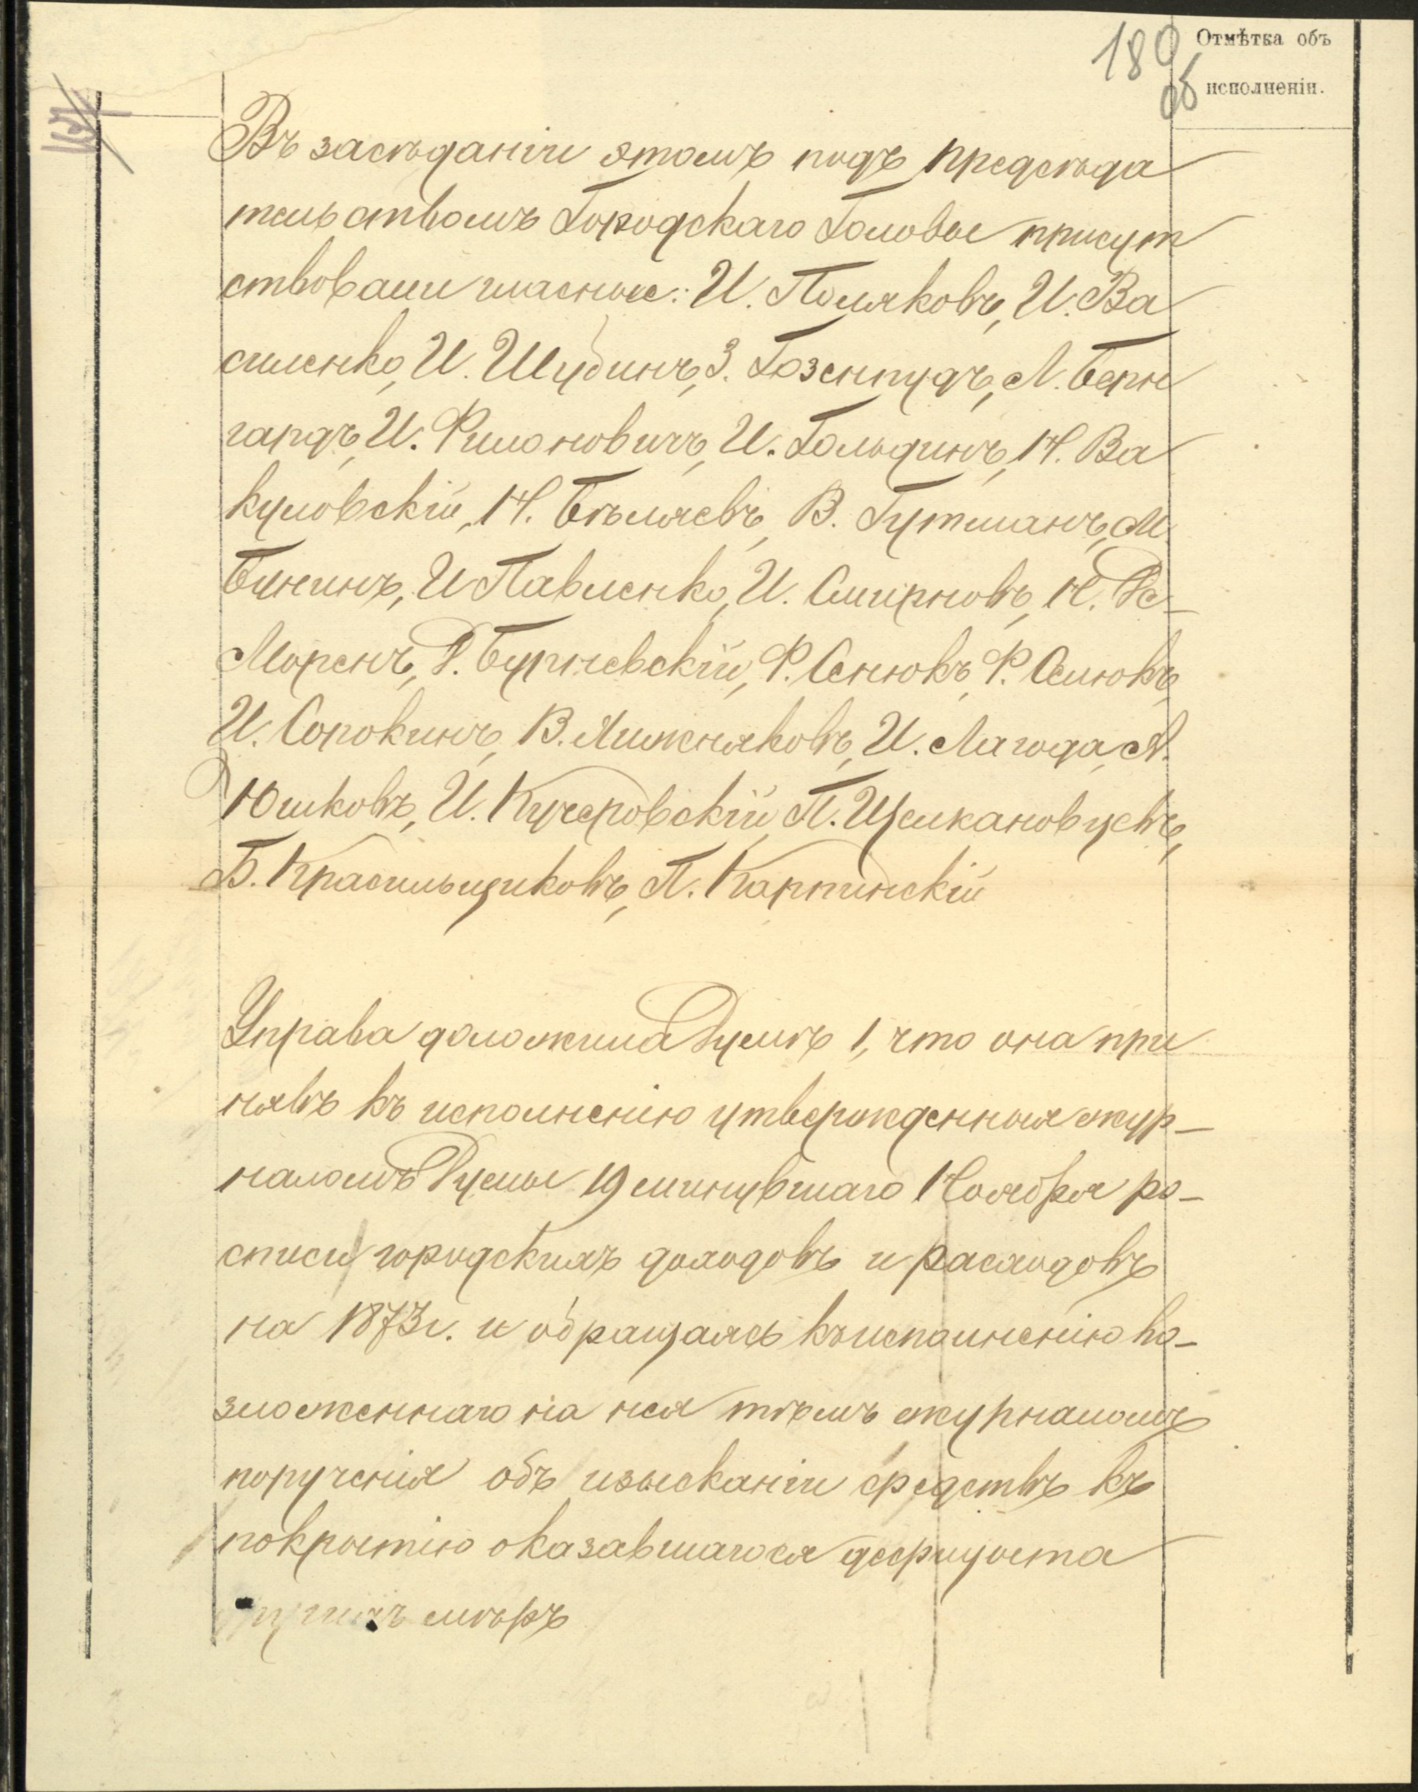 180
об
Отмѣтка объ
исполненіи.
Въ засѣданіи этомъ подъ предсѣда
тельствомъ Городскаго Головы присут
ствовали гласные: И. Поляковъ, И. Ва
силенко, И. Шубинъ, З. Гозенпудъ, Л. Берн
гардъ, И. Филоновичъ, И. Гольдинъ, Н. Ва
куловскій, Н. Бѣляевъ, В. Гутманъ, М.
Бинкинъ, И Павленко, И. Смирновъ, Н. Де-
Моренъ, Д. Бурневскій, Ф. Сенюкъ, Ф. Семюкъ,
И. Сорокинъ, В. Лижняковъ, И. Лагода, А.
Юшковъ, И. Кучеровскій, П. Щелкановцевъ,
Б. Красильщиковъ, П. Карпинскій
Управа доложила Думѣ 1, что она при
нявъ къ исполненію утвержденныя жур-
наломъ Думы 19 минувшаго Ноября ро-
списи городскихъ доходовъ и расходовъ
на 1873 г. и обращаясь къ исполненію во-
зложеннаго на нея тѣмъ журналомъ
порученія объ изысканіи средствъ къ
покрытію оказавшагося дефицыта
мѣръ